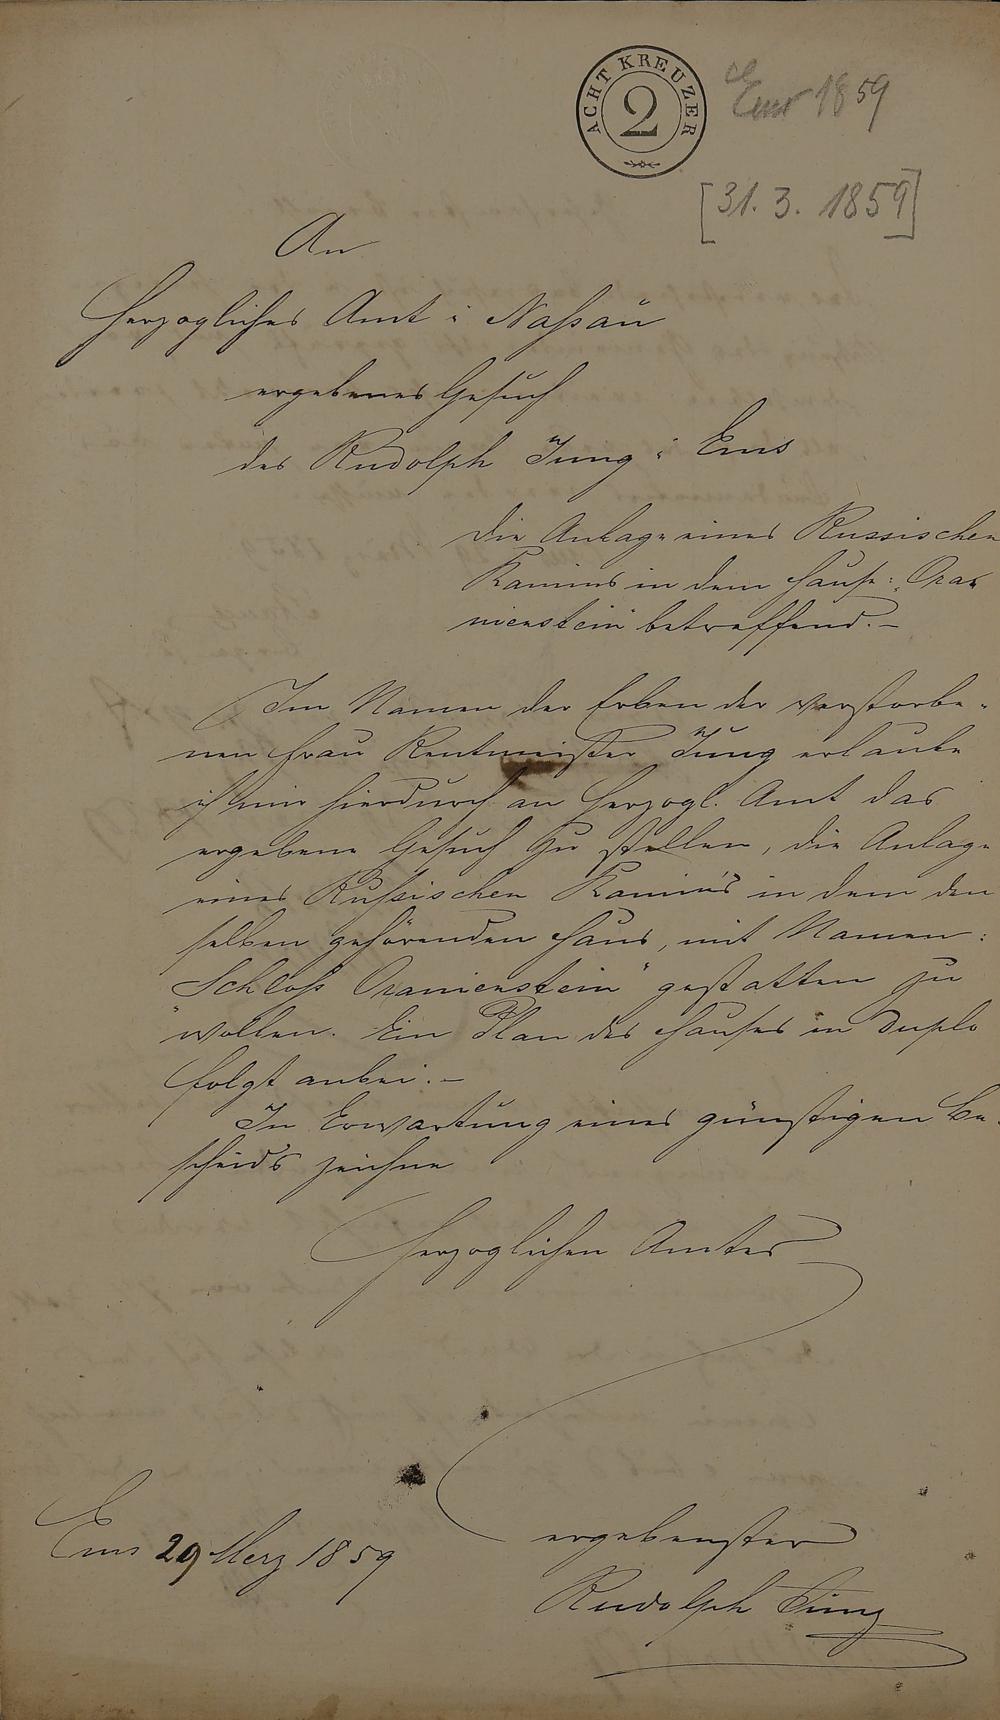 ACHT KREUZER
2
Ems 1859
[31. 3. 1859]
An
Herzogliches Amt i Naßau
ergebenes Gesuch
des Rudolph Jung i Ems
die Anlage eines Russischen
Kamins in dem Hause: „Ora
nienstein" betreffend. –
Im Namen der Erben der verstorbe-
nen Frau Rentmeister Jung erlaube
ich mir hierdurch an Herzogl. Amt das
ergebene Gesuch zu stellen, die Anlage
eines Rußischen Kamin's in dem den
selben gehörenden Haus, mit Namen:
„Schloß Oranienstein" gestatten zu
wollen. Ein Plan des Hauses in Duplo
folgt anbei. –
In Erwartung eines günstigen Be-
scheid's zeichne
Herzoglichen Amtes
ergebenster
Rudolph Jung
Ems 29 Merz 1859